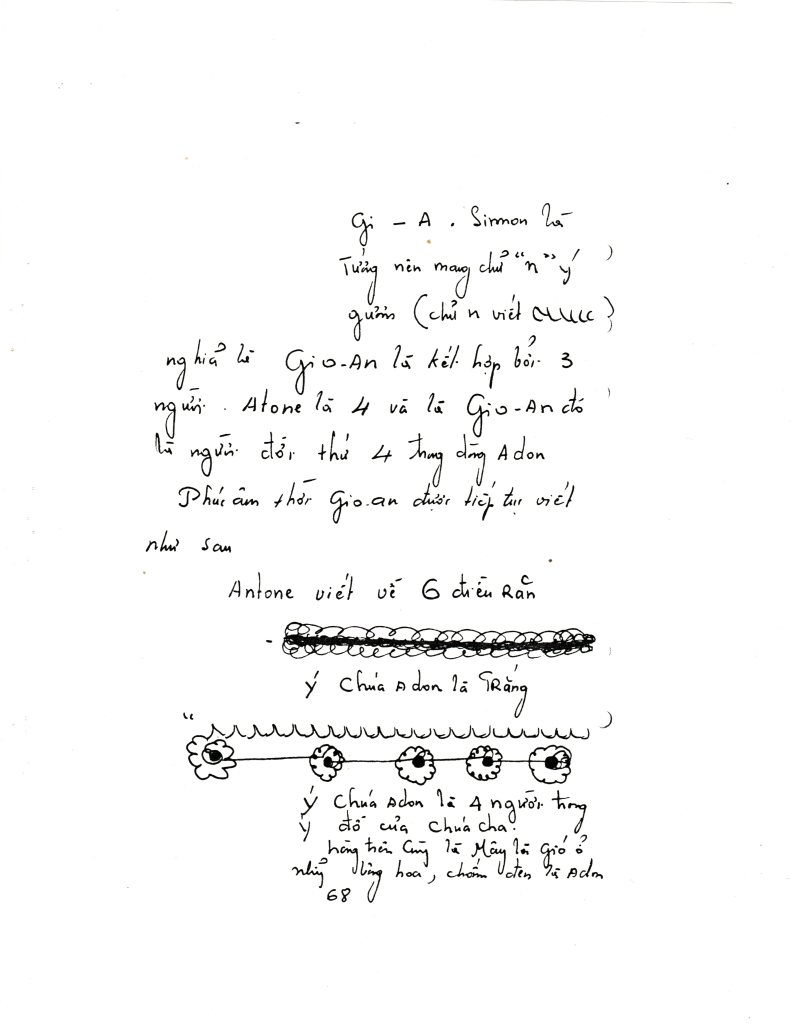 Gi - A . Simmon là
Tưởng nên mang chữ "n" ý
gươm (chữ n viết
nghiã là Gio-An là kết hợp bởi 3
người. Atone là 4 và là Gio-An đó
là người đời thứ 4 trong dòng Adon
Phúc âm thời Gio-an được tiếp tục viết
như sau
Antone viết về 6 điều Răn
Ý Chúa Adon là TRắng
Ý Chúa Adon là 4 người trong
ý đồ của Chúa cha.
hàng trên Cùng là Mây là Gió ở
những bông hoa, chấm đen là Adon
68